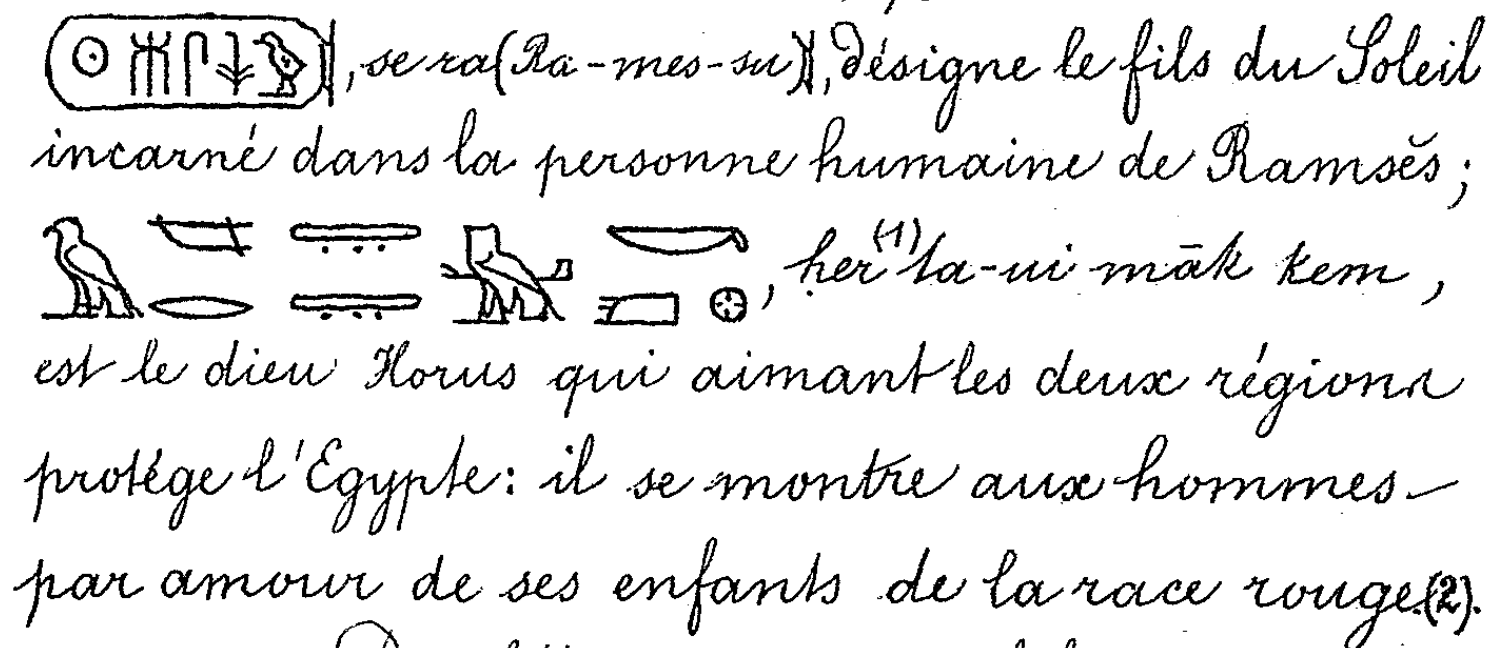 , se ra (Ra-mes-su), désigne le fils du Soleil
incarné dans la personne humaine de Ramsès ;
, ḥer (1) ta-ui māk kem ,
est le dieu Horus qui aimant les deux régions
protége l'Egypte : il se montre aux hommes
par amour de ses enfants de la race rouge.(2).